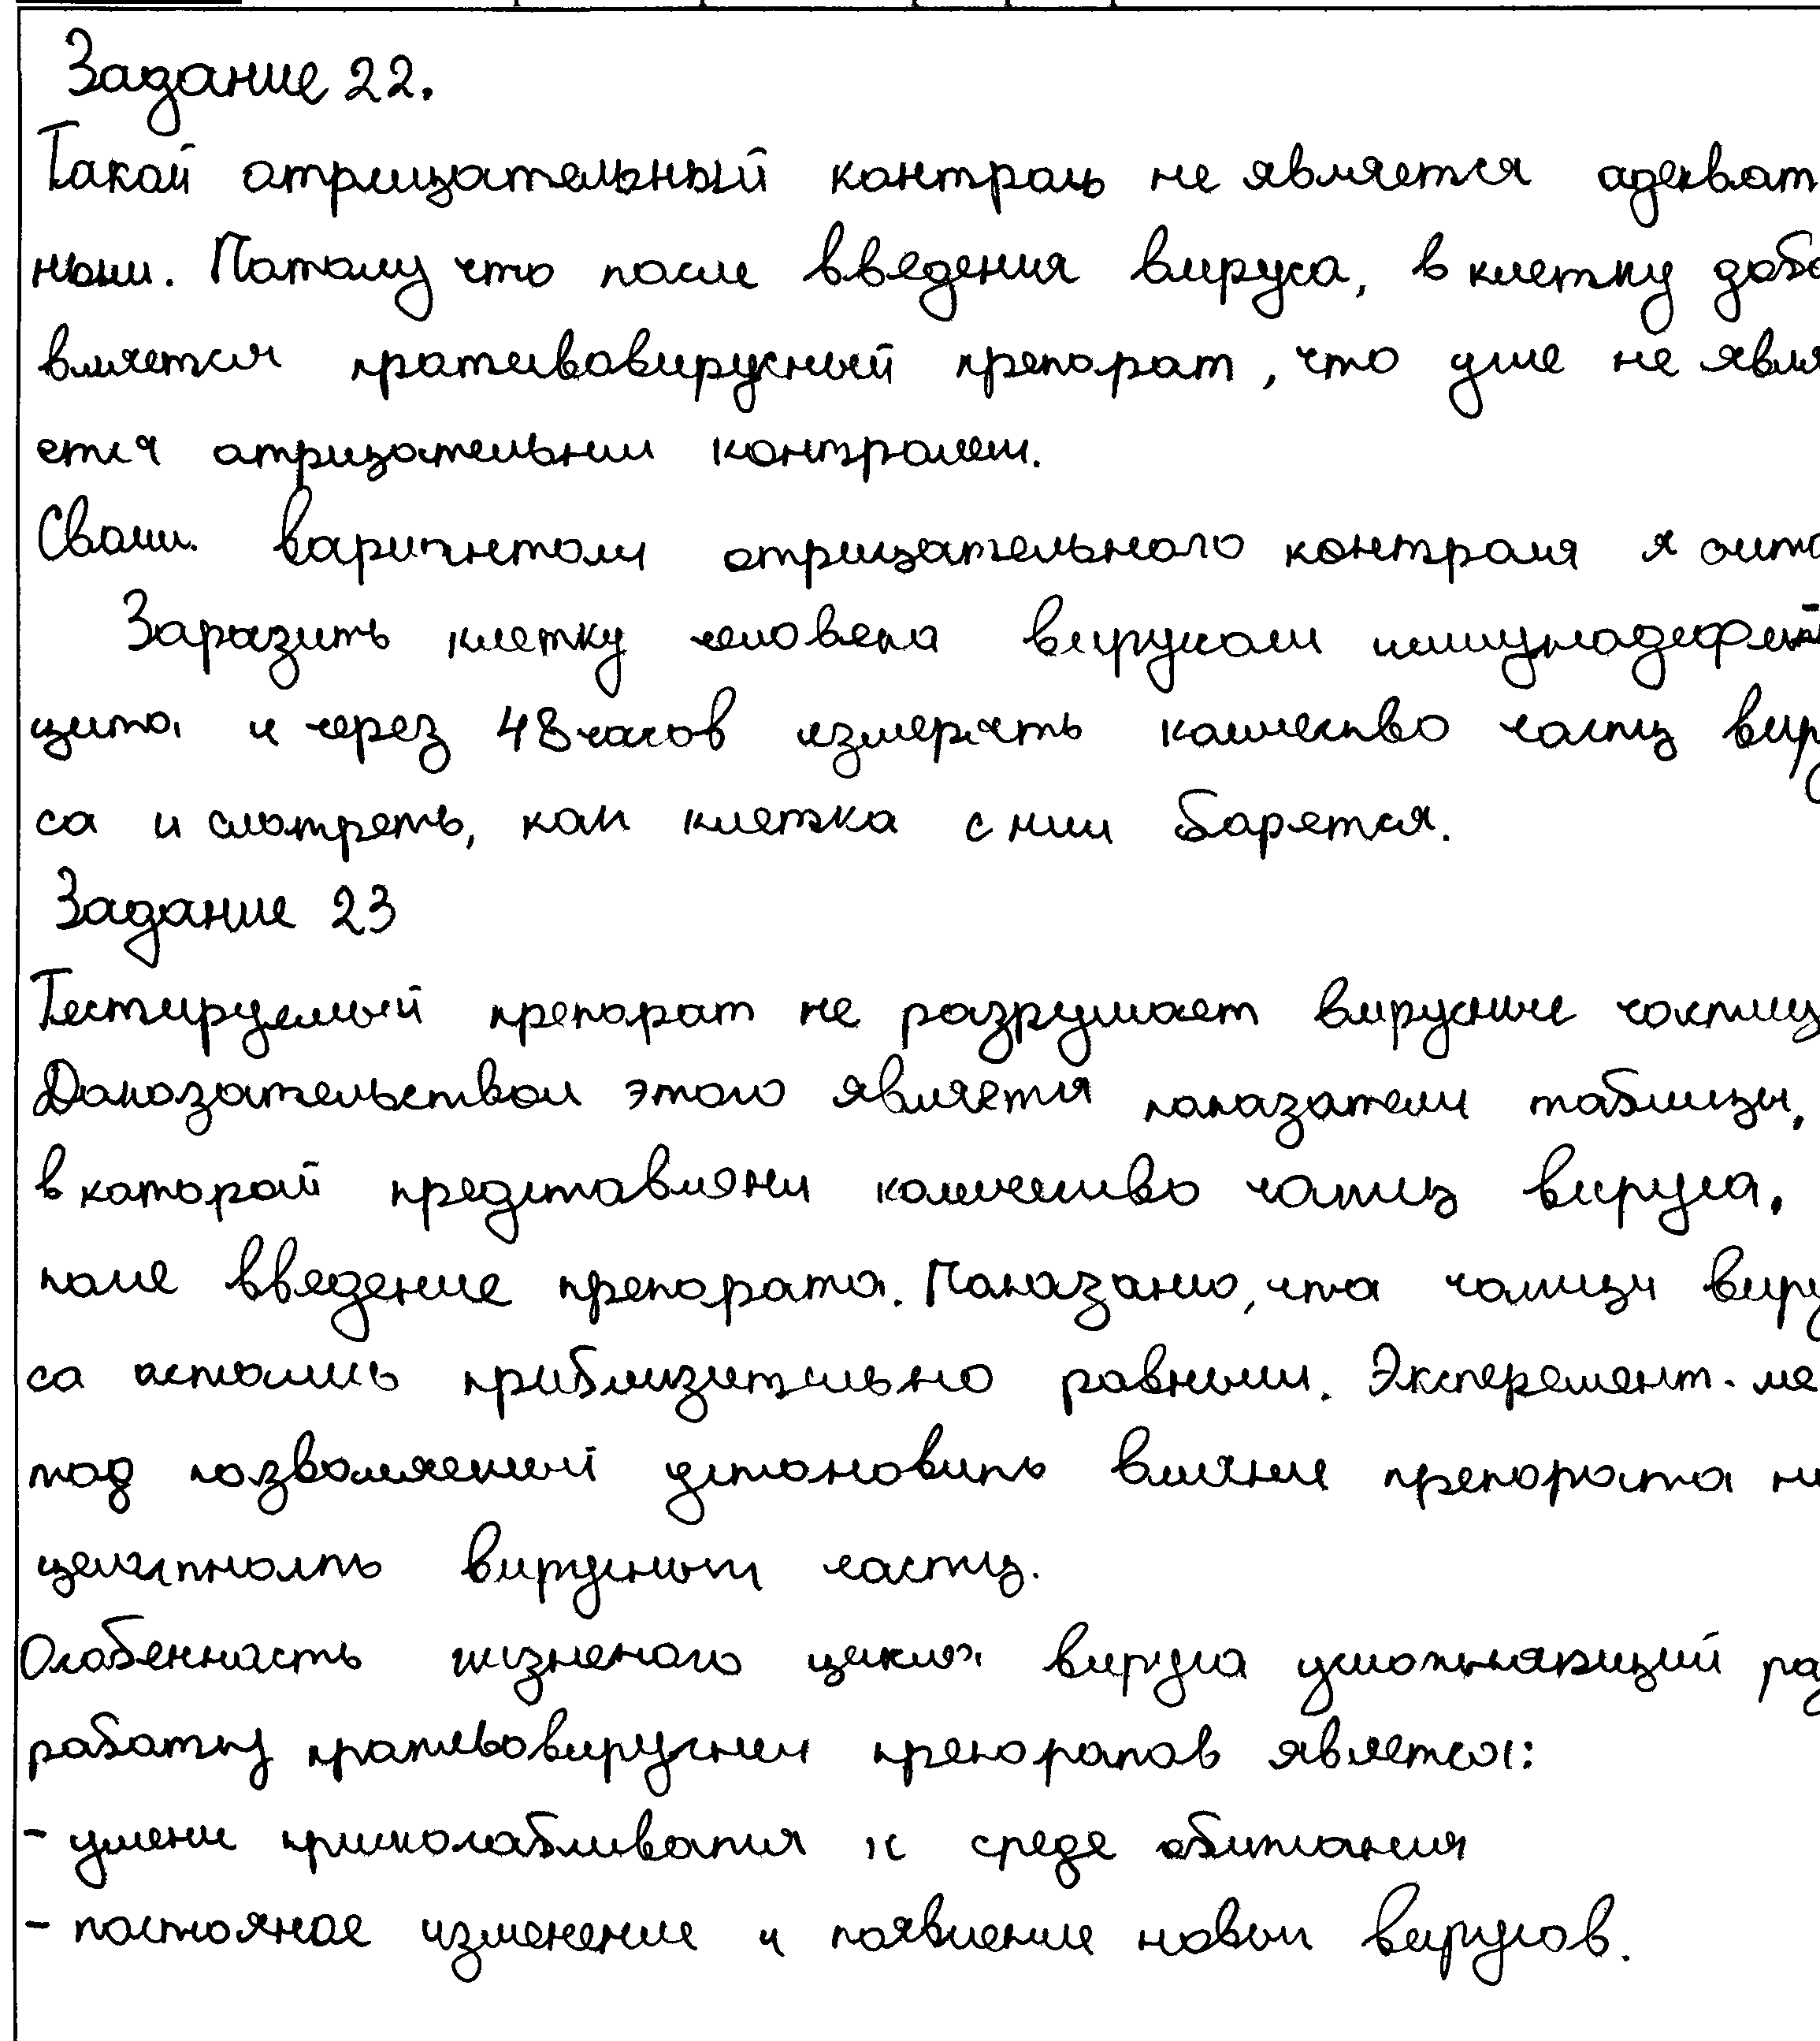 Задание 22.
Такой отрицательный контроль не является адекват
ным. Потому что после введения вируса, в клетку доба
вляется противовирусный препарат, что уже не явля
ется отрицательним контролем.
Своим вариантом отрицательного контроля я счита
Заразить клетку человека вирусом иммунодефи
цита и через 48 часов измерять количество частиц виру
са и смотреть, как клетка с ним борятся.
Задание 23
Тестируемый препарат не разрушает вирусные частиц
Доказательством этого является показатели таблицы,
в которой представляны количество частиц вируса,
после введение препарата. Показано, что частицы виру
са остались приблизительно равными. Эксперемент - ме
тод позволяющий установить влияние препарата на
целостность вирусных частиц.
Особенность жизненого цикла вируса усложняющий раз
работку противовирусных препоратов является:
- умение присособливатся к среде обитания
- постояное изменение и появление новых вирусов.